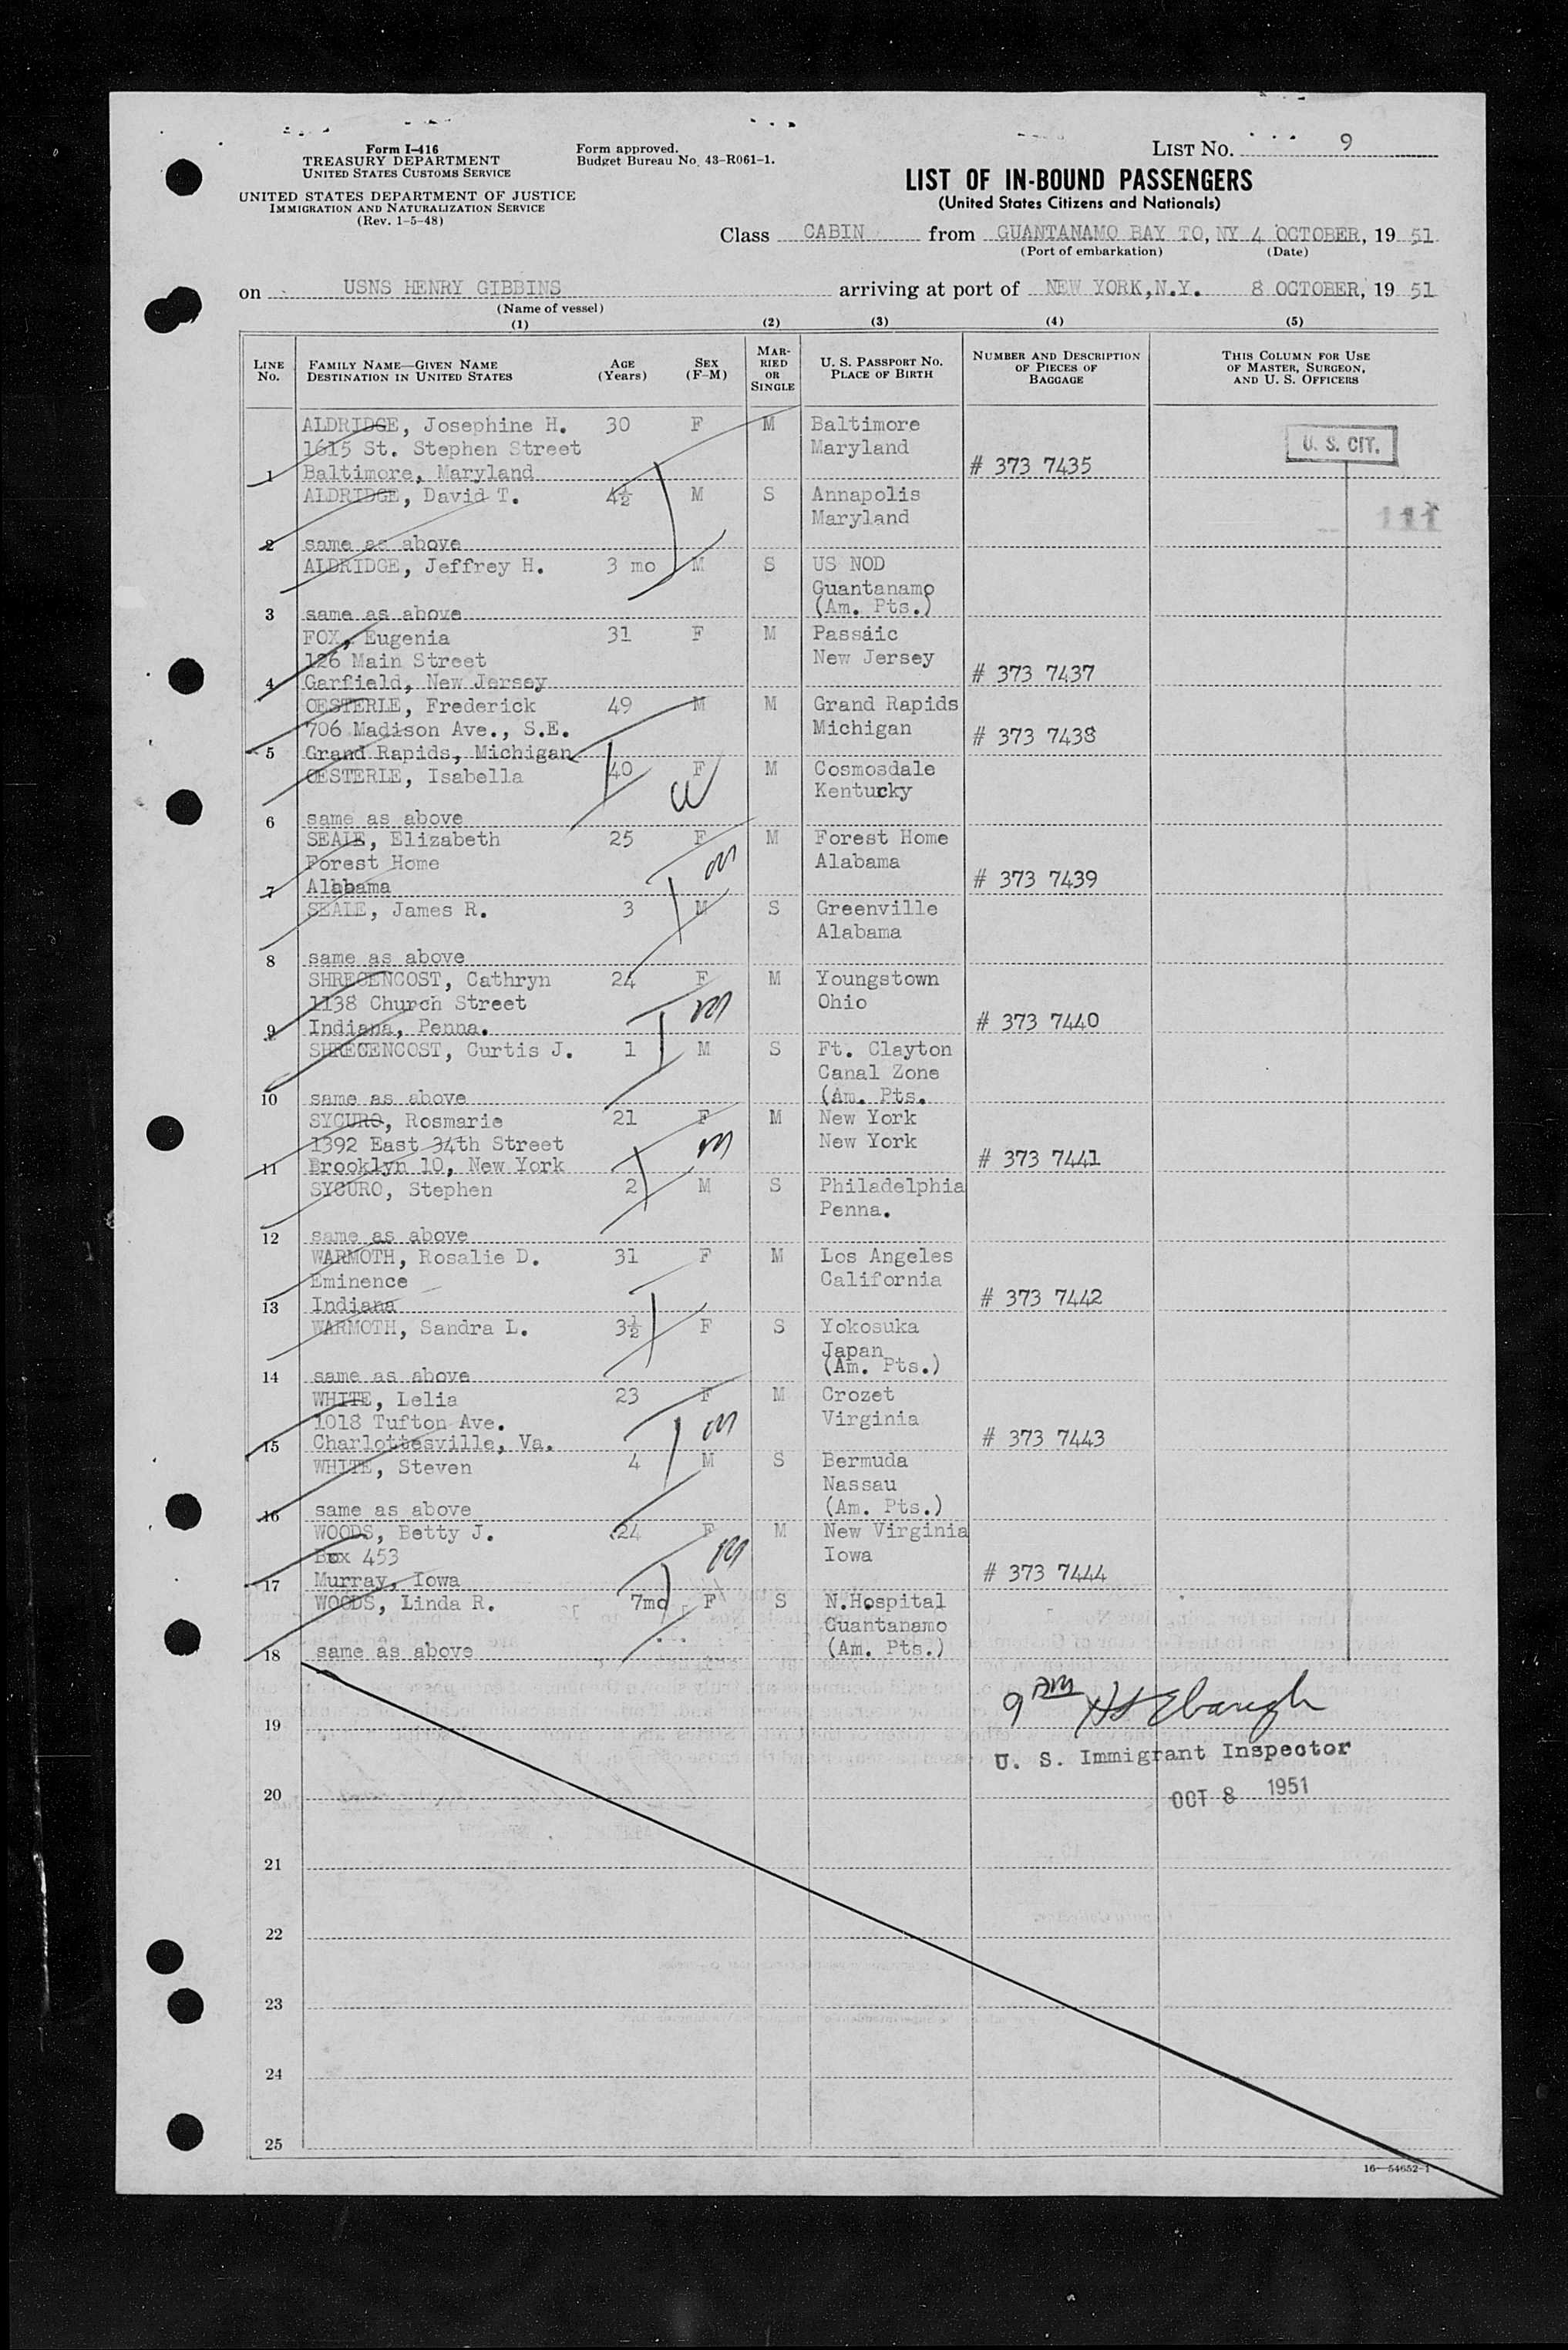 Form I-416
TREASURY DEPARTMENT
UNITED STATES CUSTOMS SERVICE
UNITED STATES DEPARTMENT OF JUSTICE
IMMIGRATION AND NATURALIZATION SERVICE
(Rev. 1-5-48)
Form approved.
Budget Bureau No. 43-R061-1.
LIST NO. 9
LIST OF IN-BOUND PASSENGERS
(United States Citizens and Nationals)
Class CABIN from GUANTANAMO BAY TO, NY 4 OCTOBER, 19 51
(Port of embarkation) (Date)
on USNS HENRY GIBBINS arriving at port of NEW YORK,N.Y. 8 OCTOBER, 19 51
(Name of vessel)
(1) (2) (3) (4) (5)
LINE No. FAMILY NAME—GIVEN NAME DESTINATION IN UNITED STATES AGE (Years) SEX (F-M) MARRIED OR SINGLE U. S. PASSPORT NO. PLACE OF BIRTH NUMBER AND DESCRIPTION OF PIECES OF BAGGAGE THIS COLUMN FOR USE OF MASTER, SURGEON, AND U. S. OFFICERS
ALDRIDGE, Josephine H. 30 F M Baltimore
1615 St. Stephen Street Maryland U. S. CIT.
1 Baltimore, Maryland # 373 7435
ALDRIDGE, David T. 4½ M S Annapolis
Maryland 111
2 same as above
ALDRIDGE, Jeffrey H. 3 mo M S US NOD
Guantanamo
3 same as above (Am. Pts.)
FOX, Eugenia 31 F M Passaic
126 Main Street New Jersey
4 Garfield, New Jersey # 373 7437
OESTERLE, Frederick 49 M M Grand Rapids
706 Madison Ave., S.E. Michigan # 373 7438
5 Grand Rapids, Michigan
OESTERLE, Isabella 40 F M Cosmosdale
Kentucky
6 same as above
SEALE, Elizabeth 25 F M Forest Home
Forest Home Alabama
7 Alabama # 373 7439
SEALE, James R. 3 M S Greenville
Alabama
8 same as above
SHRECENCOST, Cathryn 24 F M Youngstown
1138 Church Street Ohio
9 Indiana, Penna. # 373 7440
SHRECENCOST, Curtis J. 1 M S Ft. Clayton
Canal Zone
10 same as above (Am. Pts.
SYCURO, Rosmarie 21 F M New York
1392 East 34th Street New York
11 Brooklyn 10, New York # 373 7441
SYCURO, Stephen 2 M S Philadelphia
Penna.
12 same as above
WARMOTH, Rosalie D. 31 F M Los Angeles
Eminence California
13 Indiana # 373 7442
WARMOTH, Sandra L. 3½ F S Yokosuka
Japan
14 same as above (Am. Pts.)
WHITE, Lelia 23 F M Crozet
1018 Tufton Ave. Virginia
15 Charlottesville, Va. # 373 7443
WHITE, Steven 4 M S Bermuda
Nassau
16 same as above (Am. Pts.)
WOODS, Betty J. 24 F M New Virginia
Box 453 Iowa
17 Murray, Iowa # 373 7444
WOODS, Linda R. 7mo F S N.Hospital
Guantanamo
18 same as above (Am. Pts.)
9 AM
19
U. S. Immigrant Inspector
20 OCT 8 1951
21
22
23
24
25
16—54652-1